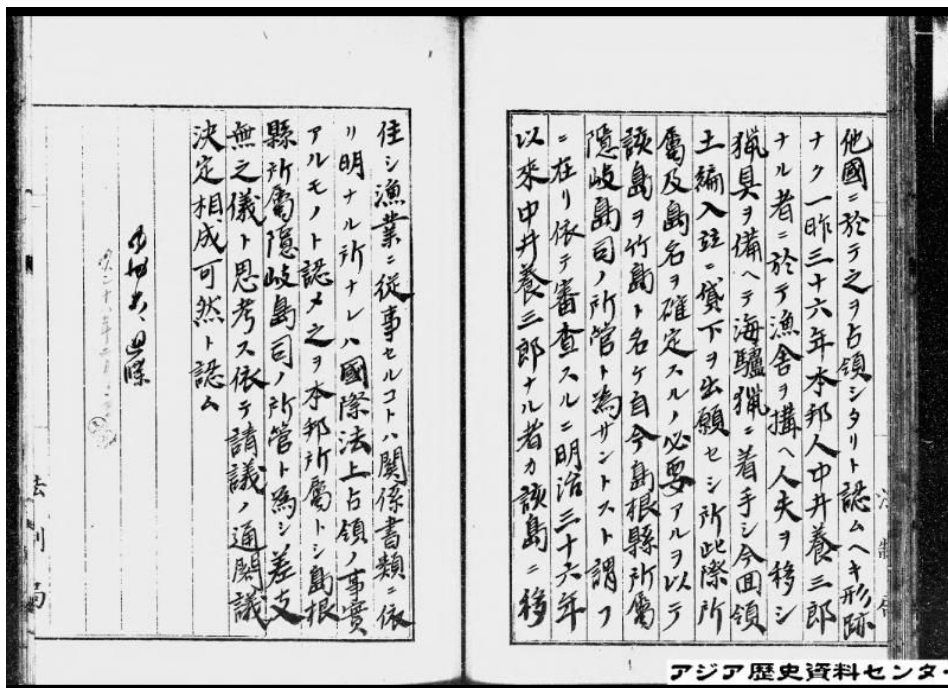 他國ニ於テ之ヲ占領シタリト認ムヘキ形跡
ナク一昨三十六年本邦人中井養三郎
ナル者ニ於テ漁舎ヲ構ヘ人夫ヲ移シ
猟具ヲ備ヘテ海驢猟ニ着手シ今回領
土編入竝ニ貸下ヲ出願セシ所此際所
屬及島名ヲ確定スルノ必要アルヲ以テ
該島ヲ竹島ト名ケ自今島根縣所屬
隠岐島司ノ所管ト為サントスト謂フ
ニ在リ依テ審査スルニ明治三十六年
以來中井養三郎ナル者カ該島ニ移
住シ漁業ニ從事セルコトハ関係書類ニ依
リ明ナル所ナレハ國際法上占領ノ事實
アルモノト認メ之ヲ本邦所屬トシ島根
縣所屬隠岐島司ノ所管ト為シ差支
無之儀ト思考ス依テ請議ノ通閣議
決定相成可然ト認ム
法制局
アジア歴史資料センター